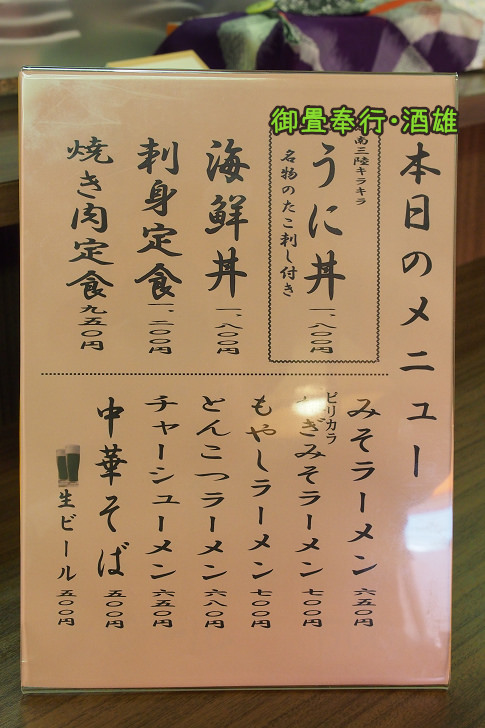 御畳奉行・酒雄
本日のメニュー
南三陸キラキラ
うに丼 一、八〇〇円
名物のたこ刺し付き
海鮮丼 一、八〇〇円
刺身定食 一、二〇〇円
焼き肉定食 九五〇円
みそラーメン 六五〇円
ピリカラ
ぎみそラーメン 七〇〇円
もやしラーメン 七〇〇円
とんこつラーメン 六八〇円
チャーシューメン 六五〇円
中華そば 五〇〇円
生ビール 五〇〇円